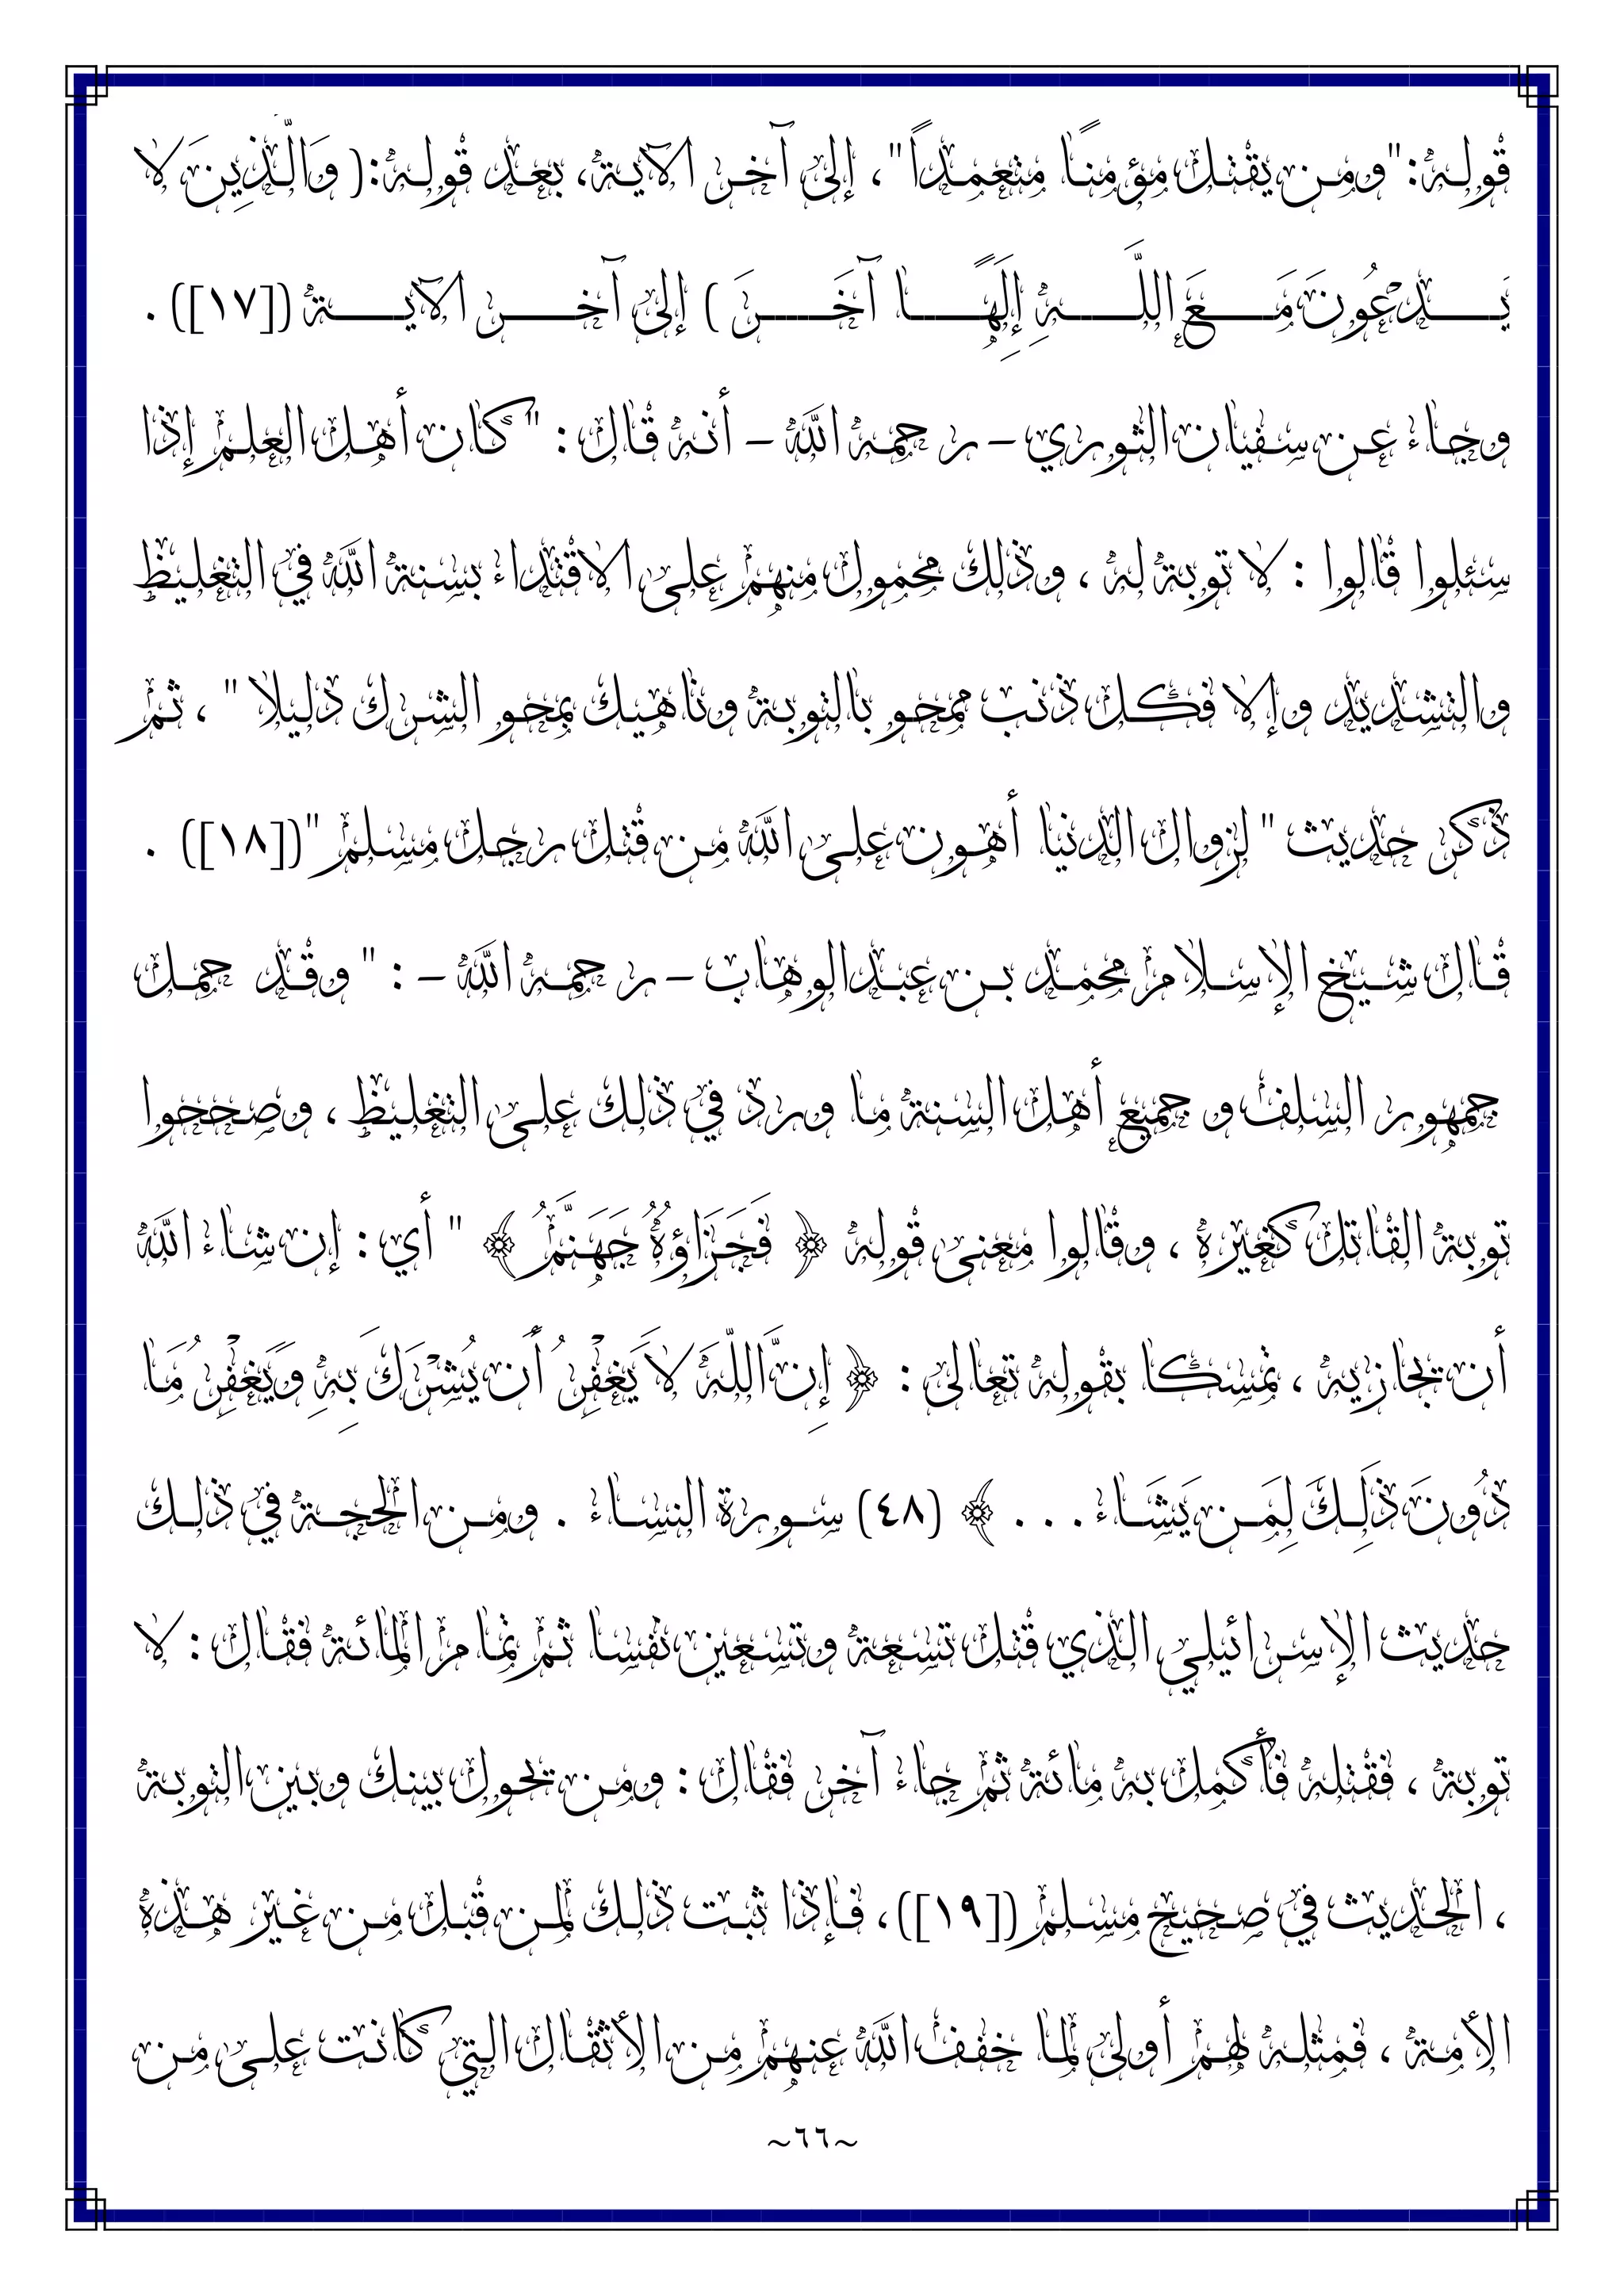 قوله:"ومن يقتل مؤمنًا متعمدًا"، إلى آخر الآية، بعد قوله:( وَالَّذِينَ لا
يَدْعُونَ مَعَ اللَّهِ إِلَهًا آخَرَ ) إلى آخر الآية ([١٧]) .
وجاء عن سفيان الثوري – رحمه الله – أنه قال : " كان أهل العلم إذا
سئلوا قالوا : لا توبة له ، وذلك محمول منهم على الاقتداء بسنة الله في التغليظ
والتشديد وإلا فكل ذنب ممحو بالتوبة وناهيك بمحو الشرك دليلا " ، ثم
ذكر حديث " لزوال الدنيا أهون على الله من قتل رجل مسلم "([١٨]) .
قال شيخ الإسلام محمد بن عبدالوهاب – رحمه الله – : " وقد حمل
جمهور السلف و جميع أهل السنة ما ورد في ذلك على التغليظ ، وصححوا
توبة القاتل كغيره ، وقالوا معنى قوله ﴿ فَجَزَاؤُهُ جَهَنَّمُ ﴾ " أي : إن شاء الله
أن تجازيه ، تمسكا بقوله تعالى : ﴿ إِنَّ اللَّهَ لاَ يَغْفِرُ أَن يُشْرَكَ بِهِ وَيَغْفِرُ مَا
دُونَ ذَلِكَ لِمَن يَشَاء . . . ﴾ (٤٨) سورة النساء . ومن الحجة في ذلك
حديث الإسرائيلي الذي قتل تسعة وتسعين نفسا ثم تمام المائة فقال : لا
توبة ، فقتله فأكمل به مائة ثم جاء آخر فقال : ومن تحول بينك وبين التوبة
، الحديث في صحيح مسلم ([١٩]) ، فإذا ثبت ذلك لمن قبل من غير هذه
الأمة ، فمثله لهم أولى لما خفف الله عنهم من الأثقال التي كانت على من
~٦٦~